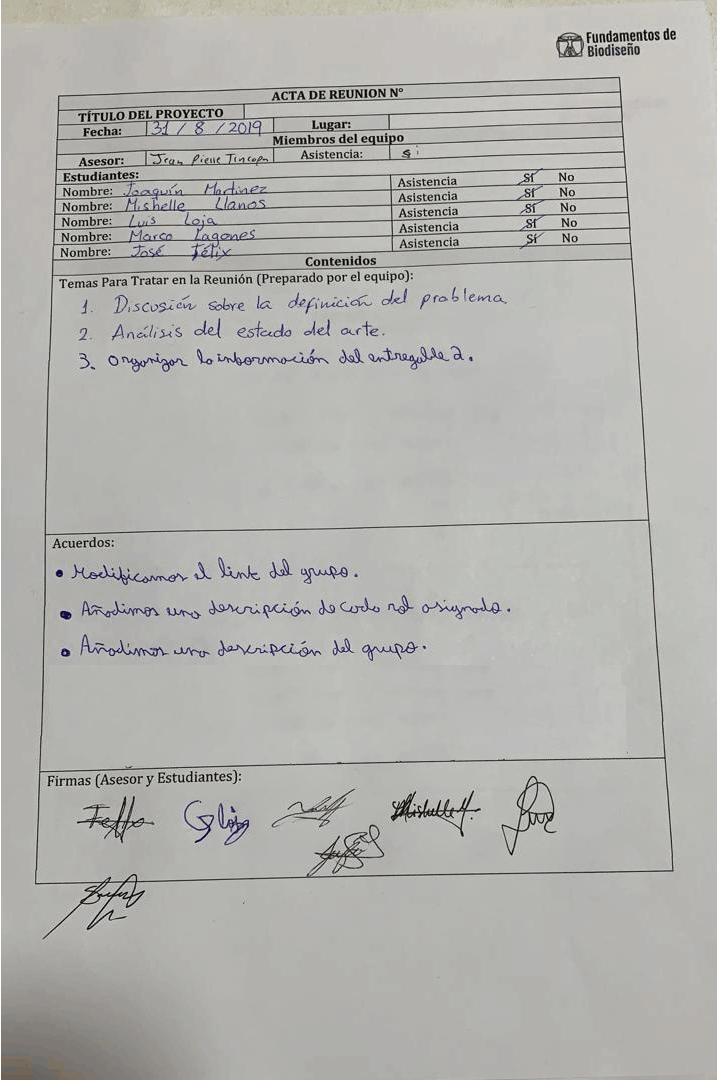 Fundamentos de
Biodiseño
ACTA DE REUNION N°
TÍTULO DEL PROYECTO
Fecha: 31 / 8 / 2019 Lugar:
Miembros del equipo
Asesor: Jean Pierre Tincopa Asistencia: Si
Estudiantes:
Nombre: Joaquín Martinez Asistencia Sí No
Nombre: Mishelle Llanos Asistencia Sí No
Nombre: Luis Loja Asistencia Sí No
Nombre: Marco Lagones Asistencia Sí No
Nombre: José Félix Asistencia Sí No
Contenidos
Temas Para Tratar en la Reunión (Preparado por el equipo):
1. Discusión sobre la definición del problema
2. Análisis del estado del arte.
3. Organizar la información del entregable 2.
Acuerdos:
• Modificamos el link del grupo.
• Añadimos una descripción de cada rol asignado.
• Añadimos una descripción del grupo.
Firmas (Asesor y Estudiantes):
Mishelle